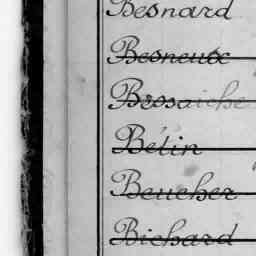 Besnard
Besneux
Brosaiche
Bétin
Beucher
Bichard